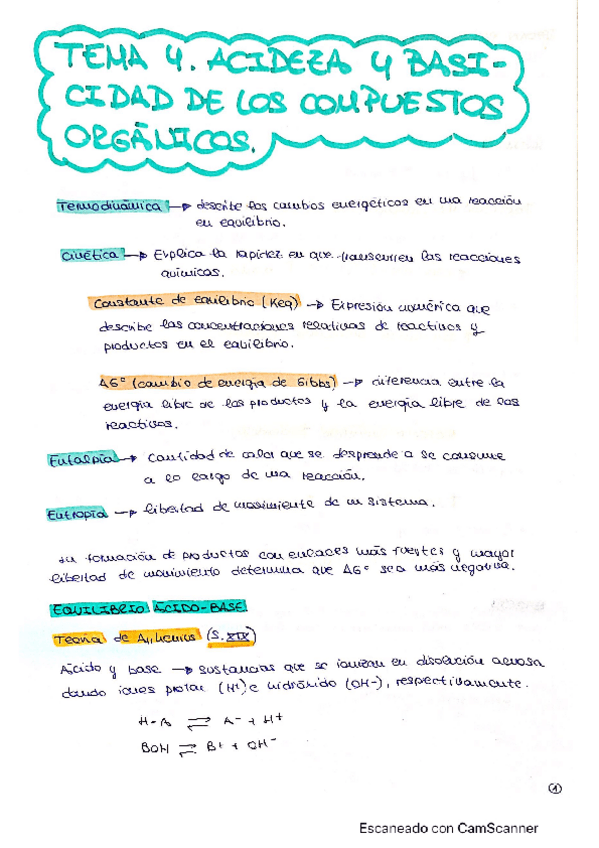 TEMA 4. ACIDEZA Y BASI-
CIDAD DE LOS COMPUESTOS
ORGÁNICOS.
Termodinámica → describe los cambios energéticos en una reacción
en equilibrio.
Cinética → Explica la rapidez en que transcurren las reacciones
químicas.
Constante de equilibrio (Keq) → Expresión numérica que
describe las concentraciones relativas de reactivos y
productos en el equilibrio.
ΔG° (cambio de energía de Gibbs) → diferencia entre la
energía libre de los productos y la energía libre de los
reactivos.
Entalpía → cantidad de calor que se desprende o se consume
a lo largo de una reacción.
Entropía → libertad de movimiento de un sistema.
La formación de productos con enlaces más fuertes y mayor
libertad de movimiento determina que ΔG° sea más negativa.
EQUILIBRIO ÁCIDO-BASE
Teoría de Arrhenius (S. XIX)
Ácido y base → sustancias que se ionizan en disolución acuosa
dando iones protón (H+) e hidróxido (OH-), respectivamente.
H-A ⇌ A- + H+
BOH ⇌ B+ + OH-
1
Escaneado con CamScanner